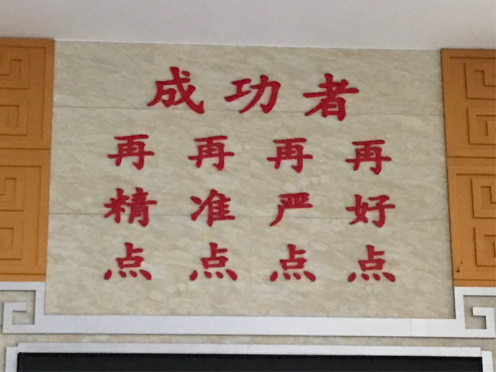 成功者
再再再再
精准严好
点点点点